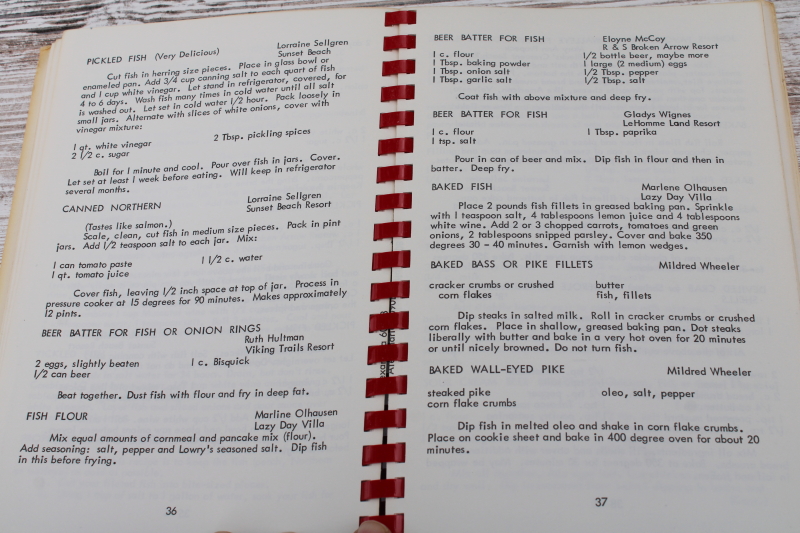 PICKLED FISH (Very Delicious)
Lorraine Sellgren
Sunset Beach
Cut fish in herring size pieces. Place in glass bowl or
enameled pan. Add 3/4 cup canning salt to each quart of fish
and 1 cup white vinegar. Let stand in refrigerator, covered, for
4 to 6 days. Wash fish many times in cold water until all salt
is washed out. Let set in cold water 1/2 hour. Pack loosely in
small jars. Alternate with slices of white onions, cover with
vinegar mixture:
1 qt. white vinegar
2 Tbsp. pickling spices
2 1/2 c. sugar
Boil for 1 minute and cool. Pour over fish in jars. Cover.
Let set at least 1 week before eating. Will keep in refrigerator
several months.
CANNED NORTHERN
Lorraine Sellgren
Sunset Beach Resort
(Tastes like salmon.)
Scale, clean, cut fish in medium size pieces. Pack in pint
jars. Add 1/2 teaspoon salt to each jar. Mix:
1 can tomato paste
1 1/2 c. water
1 qt. tomato juice
Cover fish, leaving 1/2 inch space at top of jar. Process in
pressure cooker at 15 degrees for 90 minutes. Makes approximately
12 pints.
BEER BATTER FOR FISH OR ONION RINGS
Ruth Hultman
Viking Trails Resort
2 eggs, slightly beaten
1 c. Bisquick
1/2 can beer
Beat together. Dust fish with flour and fry in deep fat.
FISH FLOUR
Marline Olhausen
Lazy Day Villa
Mix equal amounts of cornmeal and pancake mix (flour).
Add seasoning: salt, pepper and Lowry's seasoned salt. Dip fish
in this before frying.
36
BEER BATTER FOR FISH
Eloyne McCoy
R & S Broken Arrow Resort
1 c. flour
1/2 bottle beer, maybe more
1 Tbsp. baking powder
1 large (2 medium) eggs
1 Tbsp. onion salt
1/2 Tbsp. pepper
1 Tbsp. garlic salt
1/2 Tbsp. salt
Coat fish with above mixture and deep fry.
BEER BATTER FOR FISH
Gladys Wignes
LeHomme Land Resort
1 c. flour
1 Tbsp. paprika
1 tsp. salt
Pour in can of beer and mix. Dip fish in flour and then in
batter. Deep fry.
BAKED FISH
Marlene Olhausen
Lazy Day Villa
Place 2 pounds fish fillets in greased baking pan. Sprinkle
with 1 teaspoon salt, 4 tablespoons lemon juice and 4 tablespoons
white wine. Add 2 or 3 chopped carrots, tomatoes and green
onions, 2 tablespoons snipped parsley. Cover and bake 350
degrees 30 - 40 minutes. Garnish with lemon wedges.
BAKED BASS OR PIKE FILLETS
Mildred Wheeler
cracker crumbs or crushed
butter
corn flakes
fish, fillets
Dip steaks in salted milk. Roll in cracker crumbs or crushed
corn flakes. Place in shallow, greased baking pan. Dot steaks
liberally with butter and bake in a very hot oven for 20 minutes
or until nicely browned. Do not turn fish.
BAKED WALL-EYED PIKE
Mildred Wheeler
steaked pike
oleo, salt, pepper
corn flake crumbs
Dip fish in melted oleo and shake in corn flake crumbs.
Place on cookie sheet and bake in 400 degree oven for about 20
minutes.
37